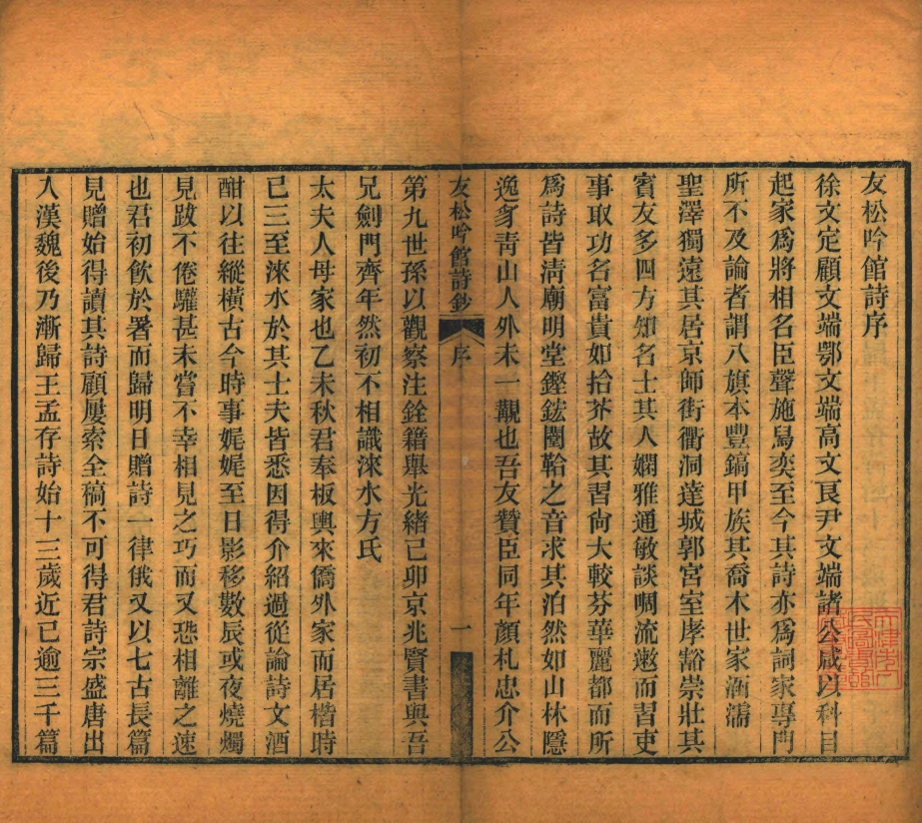 友松吟館詩序
徐文定顧文端鄂文端高文良尹文端諸公咸以科目
起家爲將相名臣聲施舃奕至今其詩亦爲詞家專門
所不及論者謂八旗本豐鎬甲族其喬木世家涵濡
聖澤獨遠其居京師街衢洞達城郭宮室庨豁崇壯其
賓友多四方知名士其人嫻雅通敏談啁流邀而習吏
事取功名富貴如拾芥故其習尙大較芬華麗都而所
爲詩皆淸廟明堂鏗鋐闛鞈之音求其泊然如山林隱
逸身靑山人外未一觀也吾友贊臣同年顏札忠介公
友松吟館詩鈔 序 一
第九世孫以觀察注銓籍舉光緒己卯京兆賢書與吾
兄劍門齊年然初不相識淶水方氏
太夫人母家也乙未秋君奉板輿來僑外家而居楷時
已三至淶水於其士夫皆悉因得介紹過從論詩文酒
酣以往縱橫古今時事娓娓至日影移數辰或夜燒燭
見跋不倦驩甚未嘗不幸相見之巧而又恐相離之速
也君初飮於署而歸明日贈詩一律俄又以七古長篇
見贈始得讀其詩顧屢索全稿不可得君詩宗盛唐出
入漢魏後乃漸歸王孟存詩始十三歲近已逾三千篇